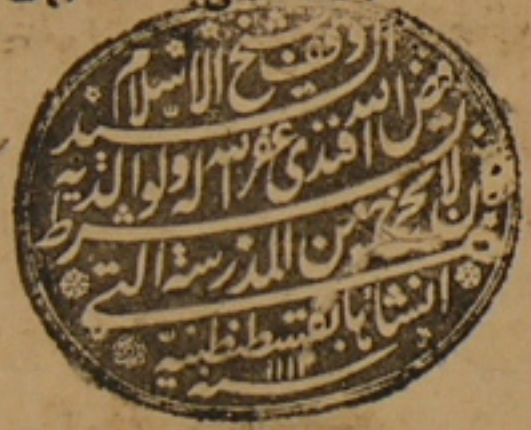 وقف شيخ الاسلام السيد
فيض الله افندى غفر الله له ولوالديه
بشرط ان لا يخرج من المدرسة التي
انشاها بقسطنطنية
سنه ١١١٢